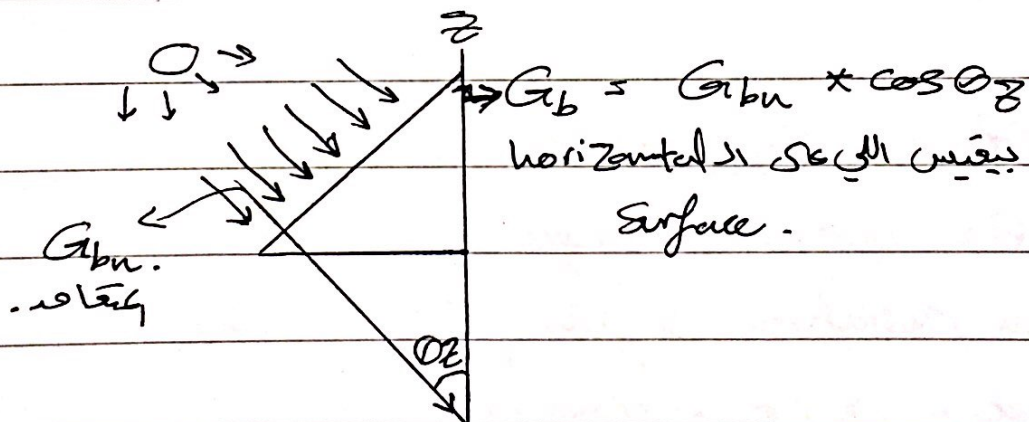 Z
G_b = G_bn * cos θ_z
بيقيس اللي على الـ horizontal
surface.
G_bn.
متعامد.
θz